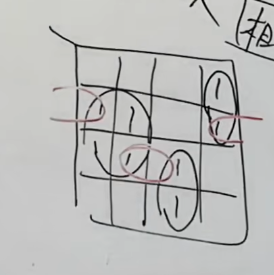 相
1
1 1 1
1 1
1